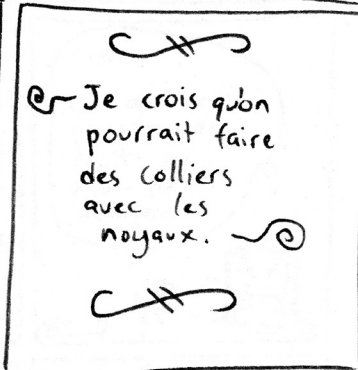 Je crois qu'on
pourrait faire
des colliers
avec les
noyaux.